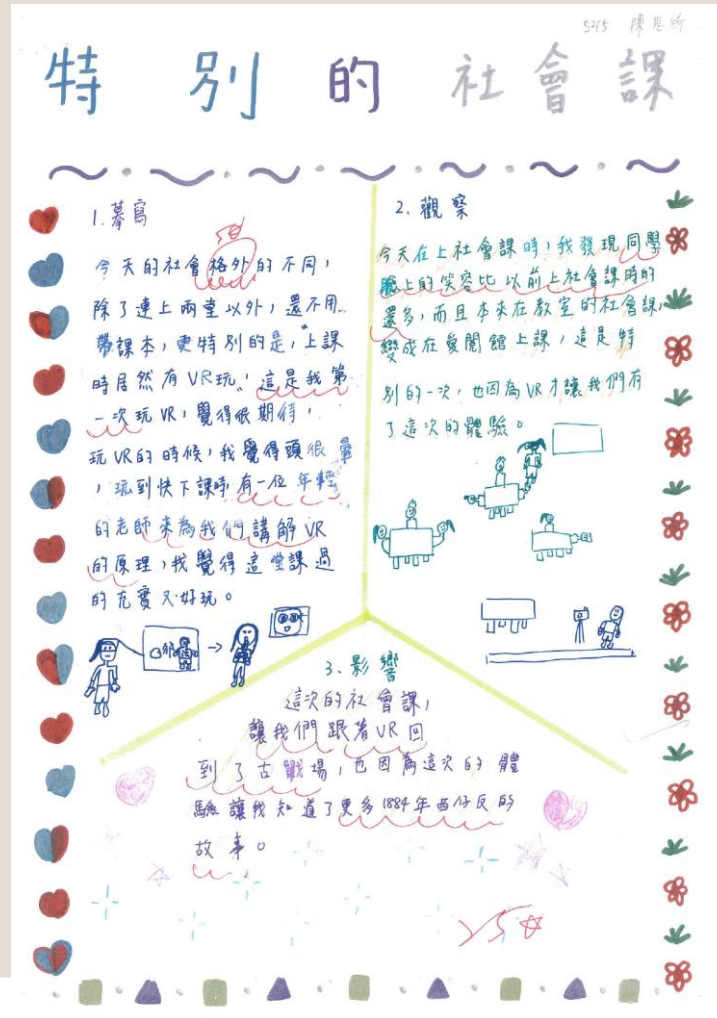 5215 陳思妡
特別的社會課
1.摹寫
今天的社會格外的不同，
除了連上兩堂以外，還不用
帶課本，更特別的是，上課
時居然有VR玩，這是我第
一次玩VR，覺得很期待，
玩VR的時候，我覺得頭很暈
，玩到快下課時有一位年輕
的老師來為我們講解VR
的原理，我覺得這堂課過
的充實又好玩。
2.觀察
今天在上社會課時，我發現同學
臉上的笑容比以前上社會課時的
還多，而且本來在教室的社會課，
變成在愛閱館上課，這是特
別的一次，也因為VR才讓我們有
了這次的體驗。
3.影響
這次的社會課，
讓我們跟著VR回
到了古戰場，也因為這次的體
驗讓我知道了更多1884年西仔反的
故事。